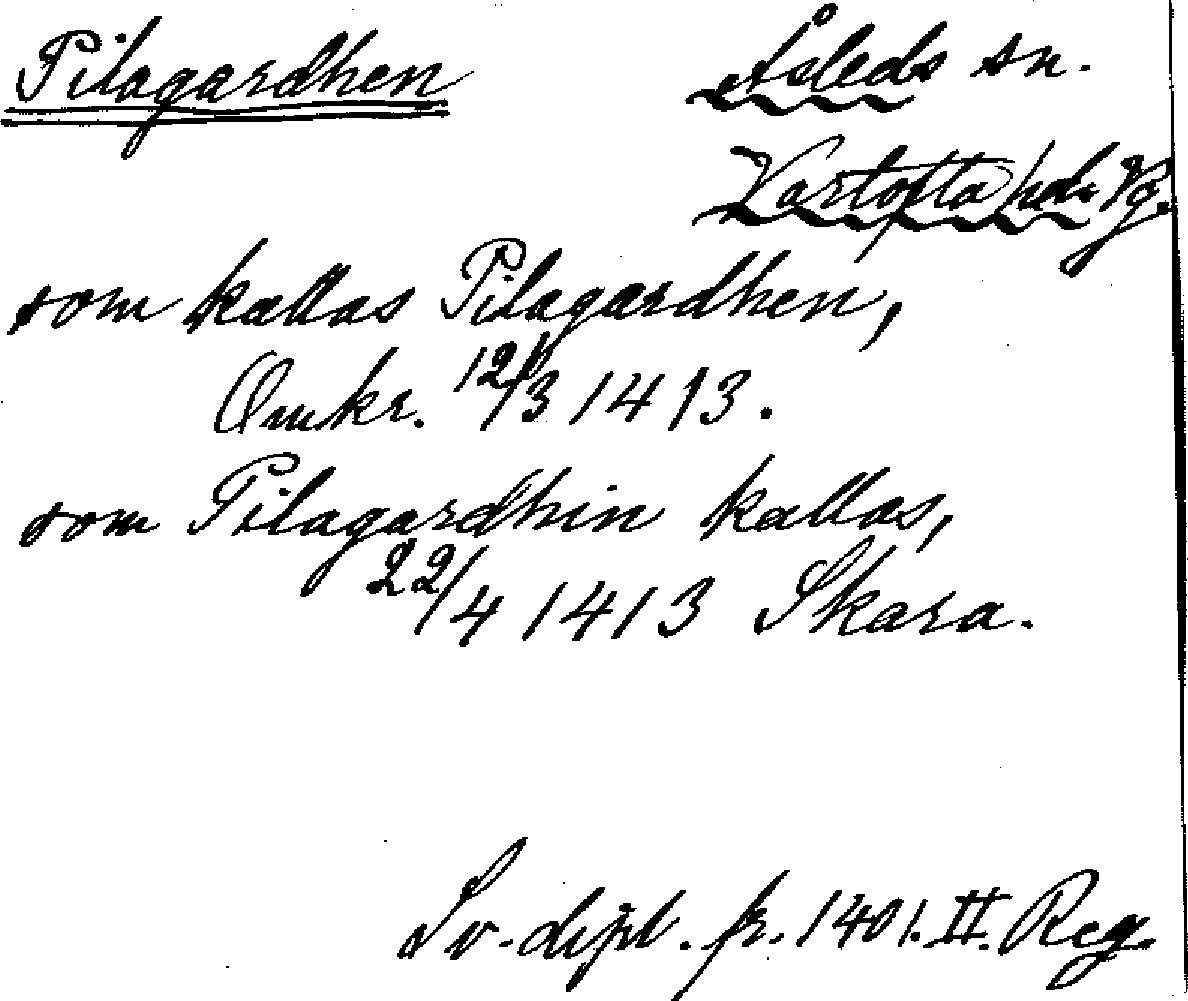 Pilagardhen
Åsleds sn.
Vartofta hd. Vg.
som kallas Pilagardhen,
Omkr. 12/3 1413.
som Pilagardhin kallas,
22/4 1413 Skara.
Sv. dipl. fr. 1401. II. Reg.